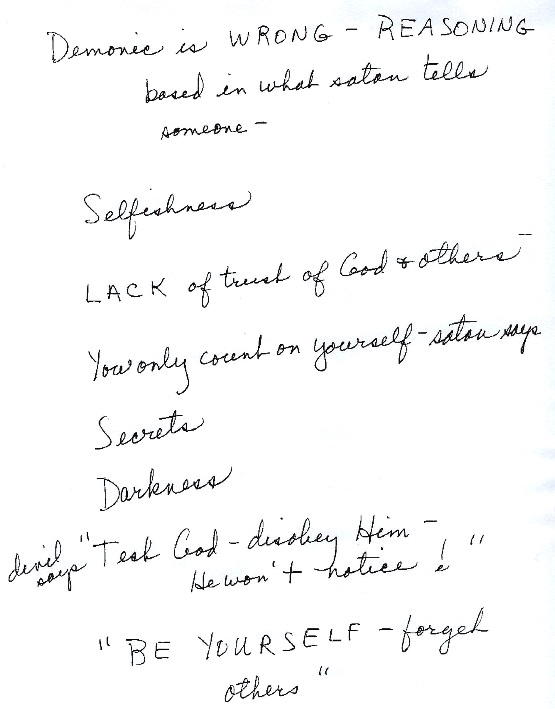 Demonic is WRONG - REASONING
based in what satan tells
someone -
Selfishness
LACK of trust of God & others -
You only count on yourself - satan says
Secrets
Darkness
devil says "Test God - disobey Him -
He won't notice! "
"BE YOURSELF - forget
others "